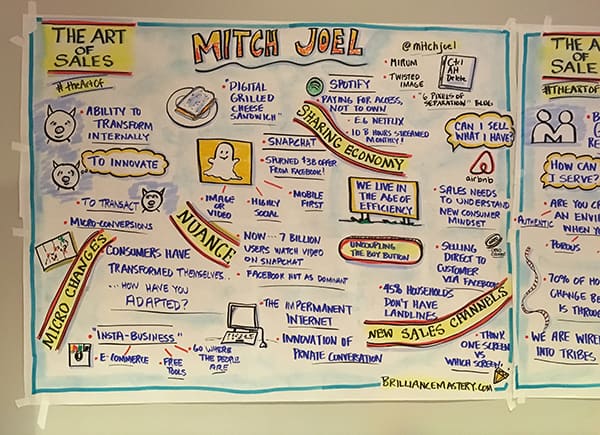 THE ART
OF
SALES
#theArtOf
MITCH JOEL
@mitchjoel
• MIRUM
• TWISTED
IMAGE
Ctrl
Alt
Delete
• "6 PIXELS OF
SEPARATION" BLOG
• ABILITY TO
TRANSFORM
INTERNALLY
TO INNOVATE
• TO TRANSACT
• MICRO-CONVERSIONS
• "DIGITAL
GRILLED
CHEESE
SANDWICH"
SPOTIFY
• PAYING FOR ACCESS,
NOT TO OWN
• E.G NETFLIX
• 10 B HOURS STREAMED
MONTHLY!
SHARING ECONOMY
CAN I SELL
WHAT I HAVE?
airbnb
SNAPCHAT
• SPURNED $3B OFFER
FROM FACEBOOK!
• IMAGE
OR
VIDEO
• HIGHLY
SOCIAL
• MOBILE
FIRST
WE LIVE IN
THE AGE OF
EFFICIENCY
• SALES NEEDS
TO UNDERSTAND
NEW CONSUMER
MINDSET
NUANCE
• NOW... 7 BILLION
USERS WATCH VIDEO
ON SNAPCHAT
• FACEBOOK NOT AS DOMINANT
UNCOUPLING
THE BUY BUTTON
• SELLING
DIRECT TO
CUSTOMER
VIA FACEBOOK
MICRO CHANGES
• CONSUMERS HAVE
TRANSFORMED THEMSELVES...
...HOW HAVE YOU
ADAPTED?
• 45% HOUSEHOLDS
DON'T HAVE
LANDLINES
NEW SALES CHANNELS
• THINK
ONE SCREEN
VS
WHICH SCREEN!
• THE IMPERMANENT
INTERNET
• INNOVATION OF
PRIVATE CONVERSATION
• "INSTA-BUSINESS"
• E-COMMERCE
• FREE
TOOLS
• GO WHERE
THE PEOPLE
ARE
BRILLIANCEMASTERY.COM
THE A
OF
SALES
#THEARTOF
HOW CAN
I SERVE?
• ARE YOU C
AN ENVI
WHEN YO
AUTHENTIC
• POROUS
• 70% OF
CHANGE BE
IS THROU
• WE ARE WIRE
INTO TRIBES